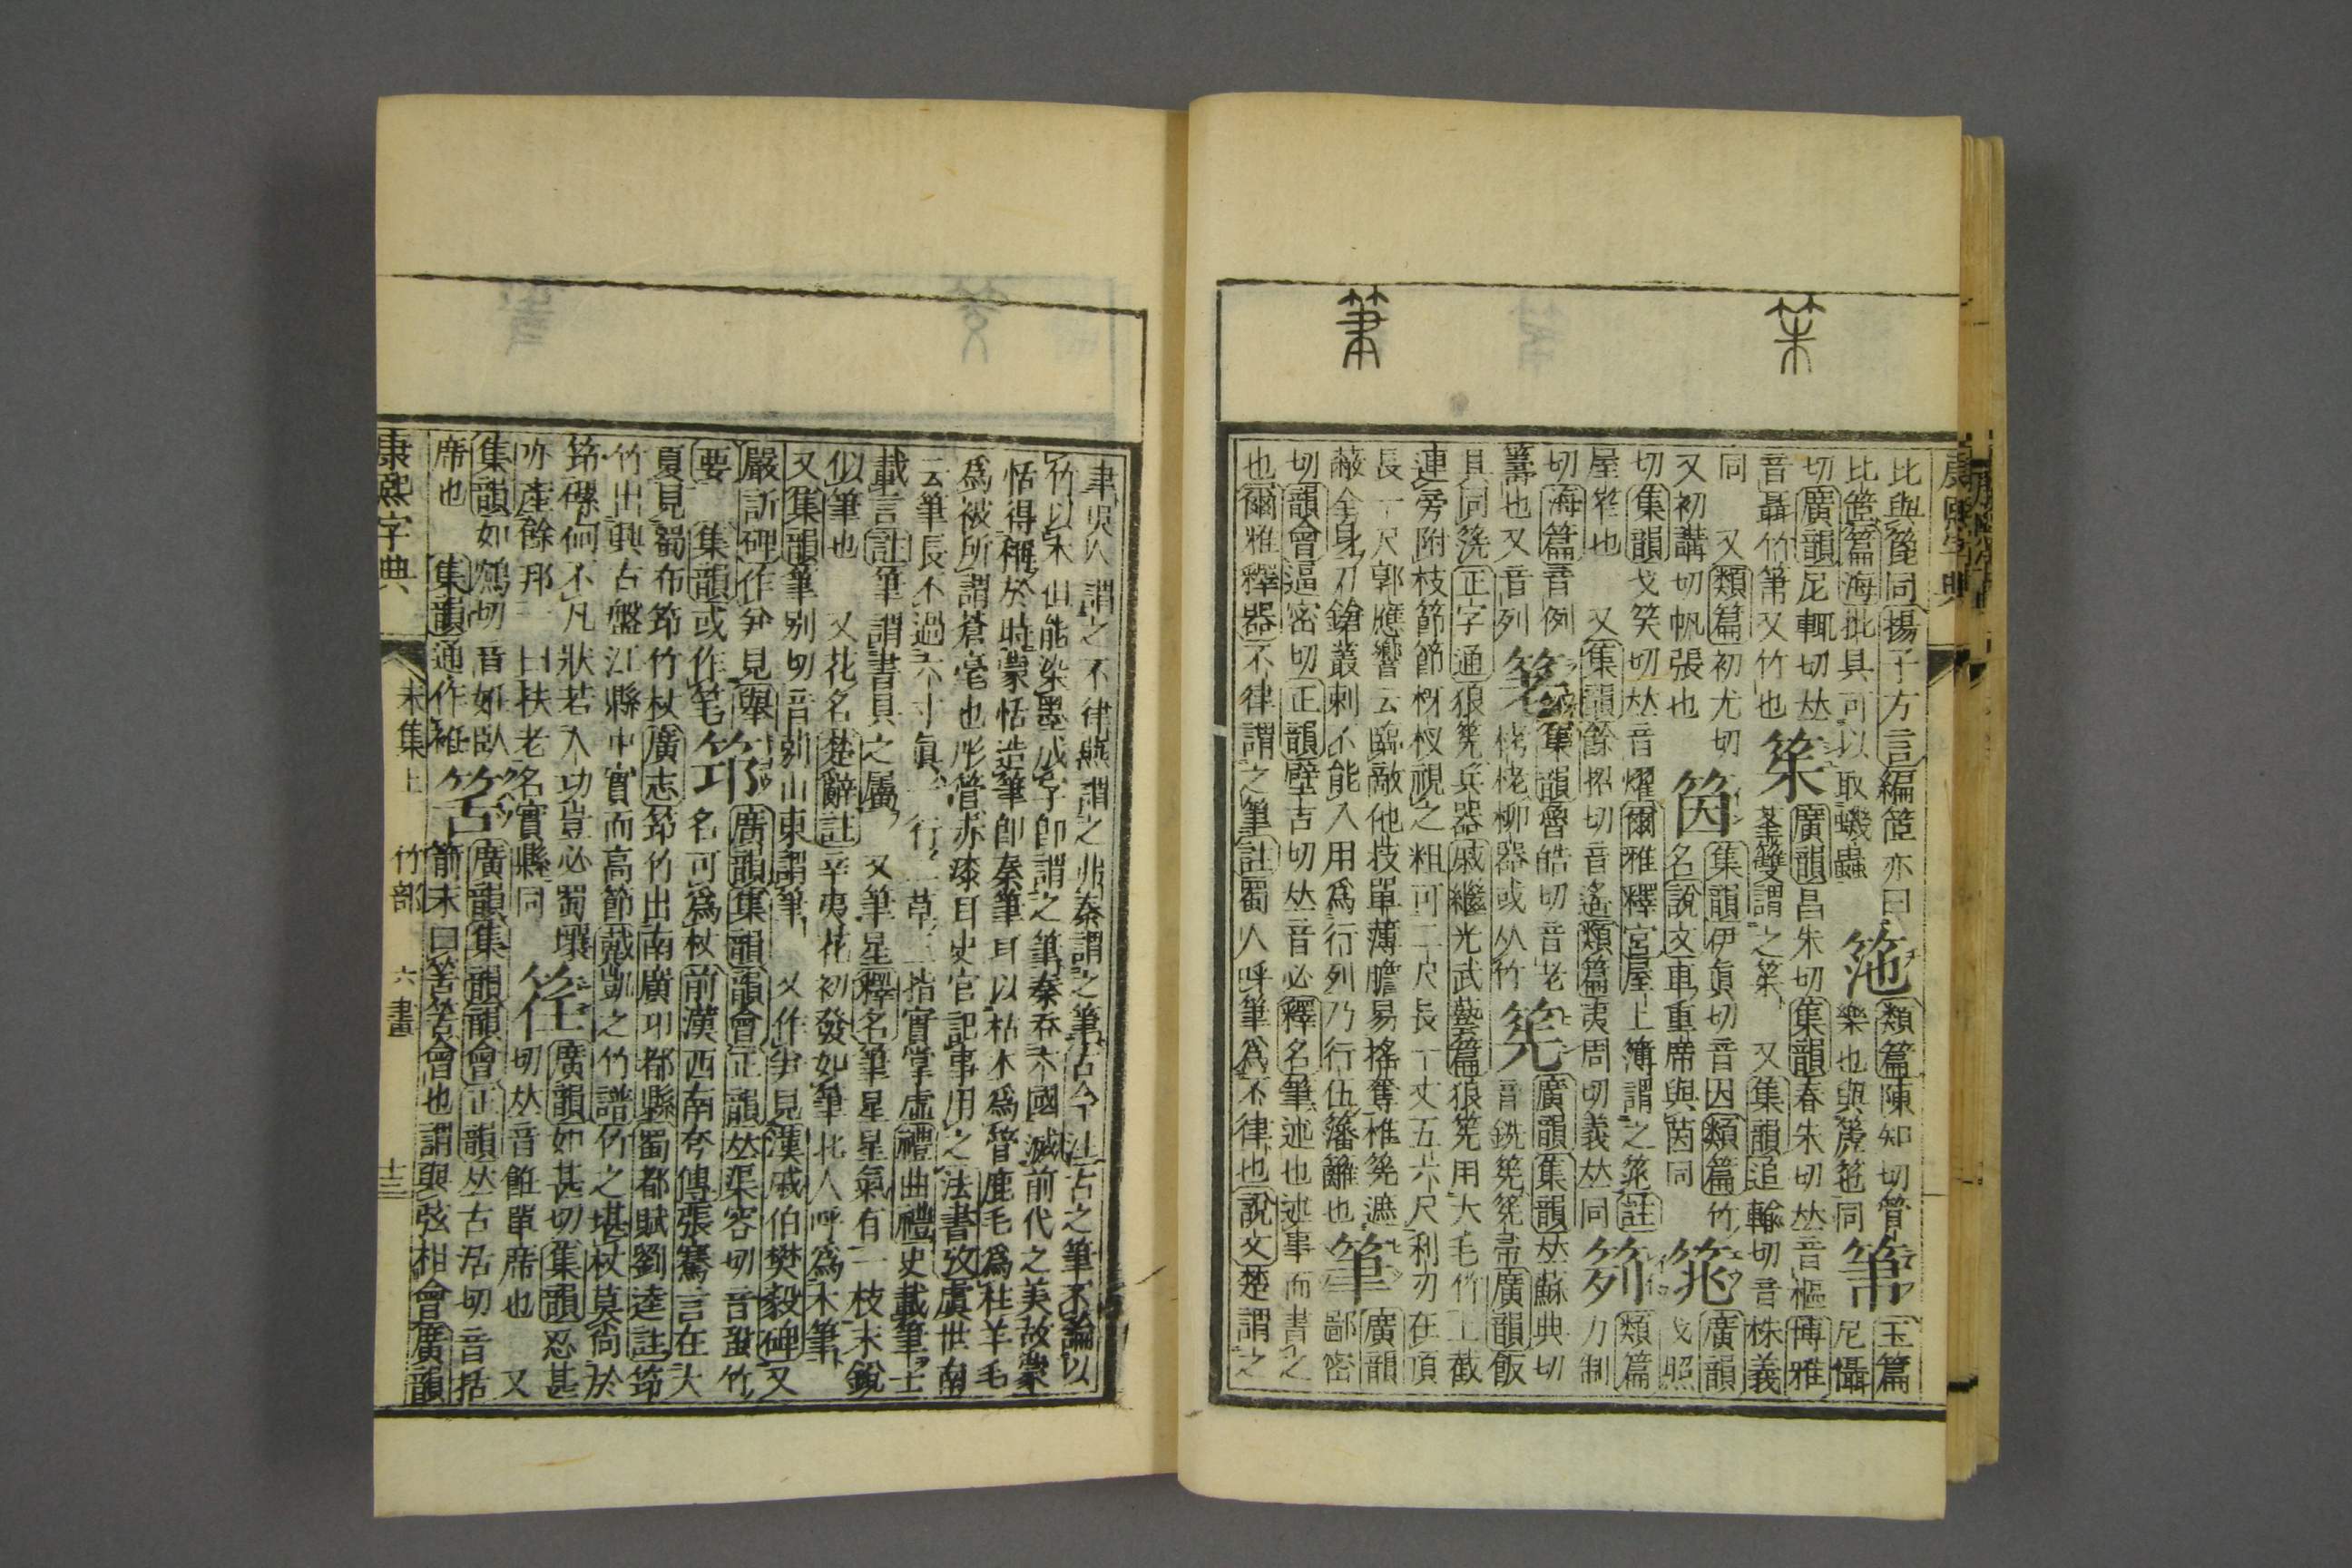 比與篦同揚子方言編笓亦曰 竾 類篇陳知切管 玉篇
比笓篇海批具可以取蟣蝨 樂也與箎竾同 尼懾
切廣韻尼輒切𠀤 筞 廣韻昌朱切集韻春朱切𠀤音樞博雅
音聶竹筆又竹也 筌䉶謂之筞 又集韻追輸切音株義
同 又類篇初尤切 筃 集韻伊眞切音因類篇竹 筄 廣韻
又初講切帆張也 名說文車重席與茵同 弋照
切集韻弋笑切𠀤音燿爾雅釋宮屋上薄謂之筄註
屋笮也 又集韻餘招切音遙類篇夷周切義𠀤同 類篇力制
切海篇音例 集韻魯皓切音老 筅 廣韻集韻𠀤蘇典切
籌也又音列 栲栳柳器或从竹 音銑筅筅帚廣韻飯
具同筅正字通狼筅兵器戚繼光武藝篇狼筅用大毛竹上截
連旁附枝節節枒杈視之粗可二尺長一丈五六尺利刃在頂
長一尺郭應響云臨敵他技單薄膽易搖奪惟筅遮 筆 廣韻
蔽全身刀鎗叢刺不能入用爲行列乃行伍籓籬也 鄙密
切韻會逼密切正韻壁吉切𠀤音必釋名筆述也述事而書之
也爾雅釋器不律謂之筆註蜀人呼筆爲不律也說文楚謂之
聿吳人謂之不律燕謂之弗秦謂之筆古今注古之筆不論以
竹以木但能染墨成字卽謂之筆秦吞六國滅前代之美故蒙
恬得稱於時蒙恬造筆卽秦筆耳以枯木爲管鹿毛爲柱羊毛
爲被所謂蒼毫也彤管赤漆耳史官記事用之法書攷虞世南
云筆長不過六寸眞一行二草三指實掌虛禮曲禮史載筆士
載言註筆謂書具之屬 又筆星釋名筆星星氣有一枝末銳
似筆也 又花名楚辭註辛夷花初發如筆北人呼爲木筆
又集韻筆別切音別山東謂筆 又作笋見漢戚伯樊毅碑又
嚴訢碑作笋見舉 筇 廣韻集韻韻會正韻𠀤渠容切音蛩竹
要 集韻或作笻 名可爲杖前漢西南夷傳張騫言在大
夏見蜀布筇竹杖廣志筇竹出南廣邛都縣蜀都賦劉逵註筇
竹出興古盤江縣中實而高節戴凱之竹譜竹之堪杖莫尙於
筇磥砢不凡狀若人功豈必蜀壤 筳 廣韻如甚切集韻忍甚
亦產餘邦一曰扶老名實縣同 切𠀤音飪單席也 又
集韻如鴆切音妊臥 筈 廣韻集韻韻會正韻𠀤古活切音括
席也 集韻通作衽 箭末曰筈筈會也謂與弦相會廣韻
康熙字典 未集上 竹部 六畫 十三